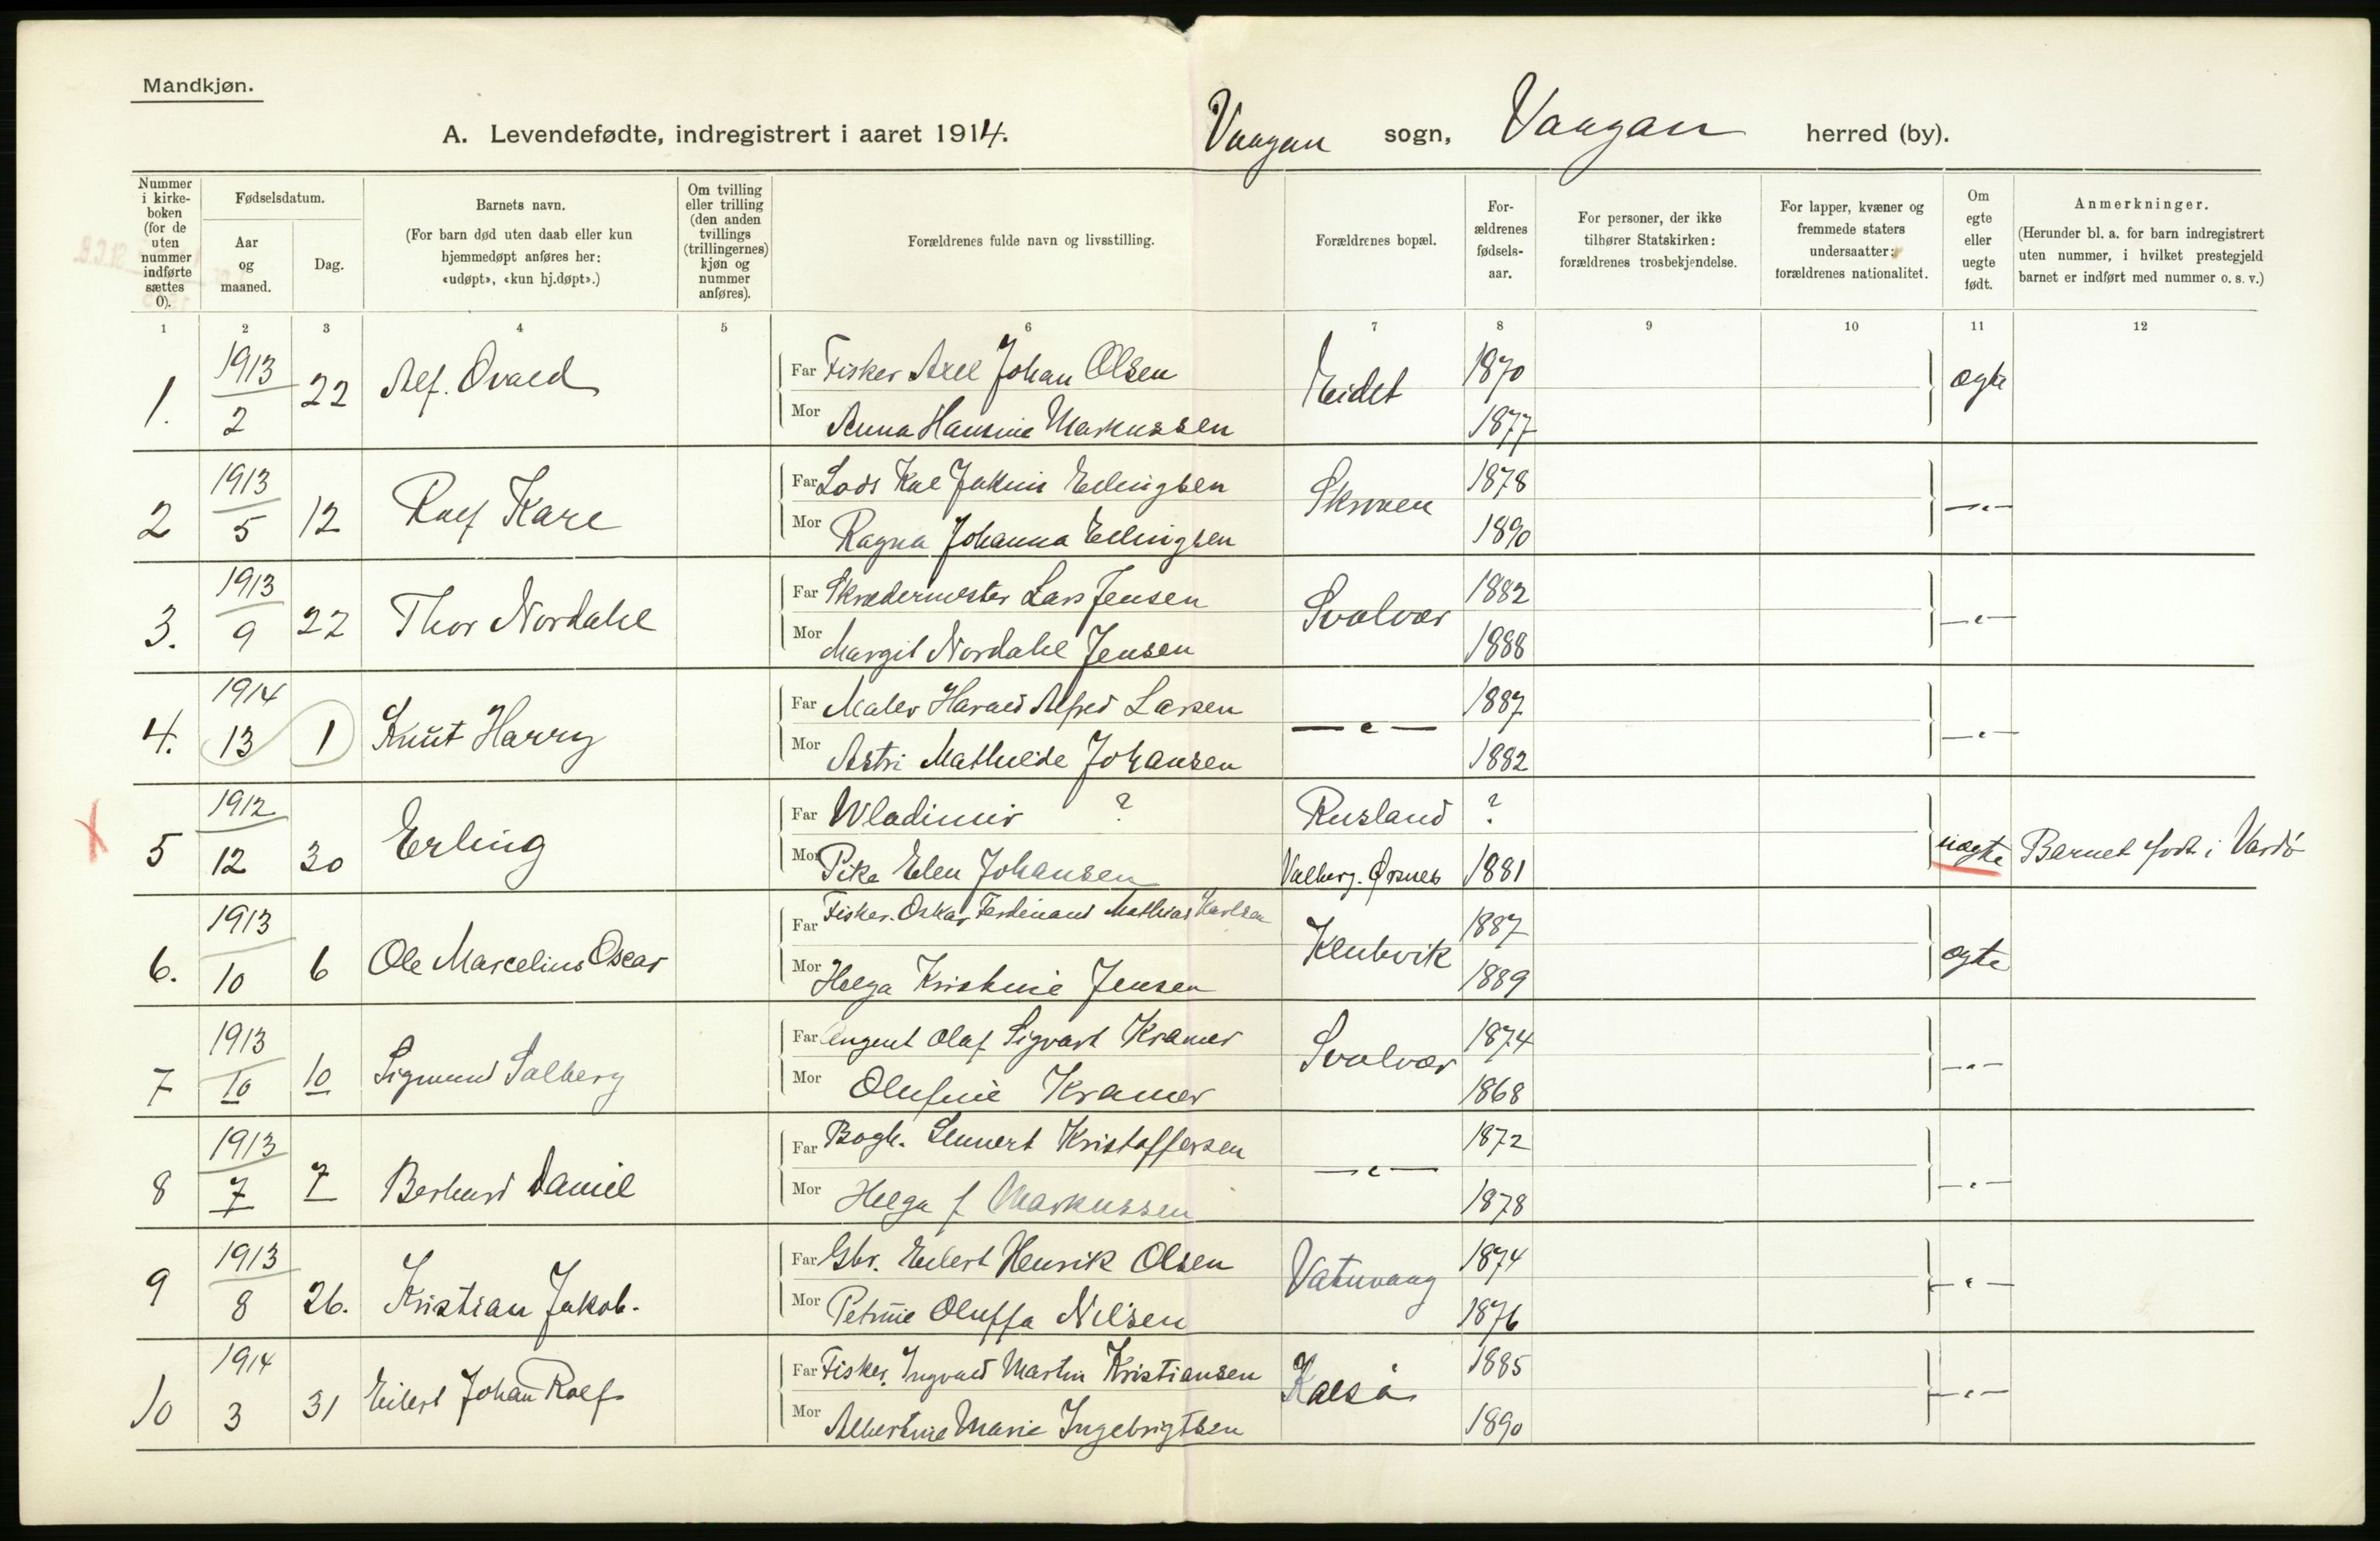 Mandkjøn.
A. Levendefødte, indregistrert i aaret 1914. Vaagan sogn, Vaagan herred (by).
Nummer i kirkeboken (for de uten nummer indførte sættes 0).
Fødselsdatum.
Aar og maaned.
Dag.
Barnets navn.
(For barn død uten daab eller kun hjemmedøpt anføres her: «udøpt», «kun hj.døpt».)
Om tvilling eller trilling (den anden tvillings (trillingernes) kjøn og nummer anføres).
Forældrenes fulde navn og livsstilling.
Forældrenes bopæl.
Forældrenes fødselsaar.
For personer, der ikke tilhører Statskirken: forældrenes trosbekjendelse.
For lapper, kvæner og fremmede staters undersaatter: forældrenes nationalitet.
Om egte eller uegte født.
Anmerkninger.
(Herunder bl. a. for barn indregistrert uten nummer, i hvilket prestegjeld barnet er indført med nummer o. s. v.)
1 2 3 4 5 6 7 8 9 10 11 12
1. 1913 2 22 Alf. Ovald
Far Fisker Axel Johan Olsen Eidet 1870 ægte
Mor Anna Hansine Markussen 1877
2 1913 5 12 Rolf Kare
Far Lods Kal Jakim Ellingsen Skroven 1878 — " —
Mor Ragna Johanna Ellingsen 1890
3. 1913 9 22 Thor Nordahl
Far Skrædermester Lars Jensen Svolvær 1882 — " —
Mor Margit Nordahl Jensen 1888
4. 1914 13 1 Knut Harry
Far Maler Harald Alfred Larsen — " — 1887 — " —
Mor Astri Mathilde Johansen 1882
5 1912 12 30 Erling
Far Wladimir ? Rusland ? uægte Barnet født i Vardø
Mor Pike Elen Johansen Valberg. Ørsnes 1881
6. 1913 10 6 Ole Marcelius Oscar
Far Fisker. Oskar Ferdinand Mathias Karlsen Klubvik 1887 ægte
Mor Helga Kristine Jensen 1889
7 1913 10 10 Sigmund Solberg
Far Angent Olaf Sigvart Kramer Svolvær 1874 — " —
Mor Olufine Kramer 1868
8 1913 7 7 Berhard Daniel
Far Bogh. Lennert Kristoffersen — " — 1872 — " —
Mor Helga f Markussen 1878
9 1913 8 26. Kristian Jakob.
Far Gbr. Eilert Henrik Olsen Vatnvaag 1874 — " —
Mor Petrine Oluffa Nilsen 1876
10 1914 3 31 Eilert Johan Rolf
Far Fisker. Ingvald Martin Kristiansen Kalså 1885 — " —
Mor Albertine Marie Ingebrigtsen 1890